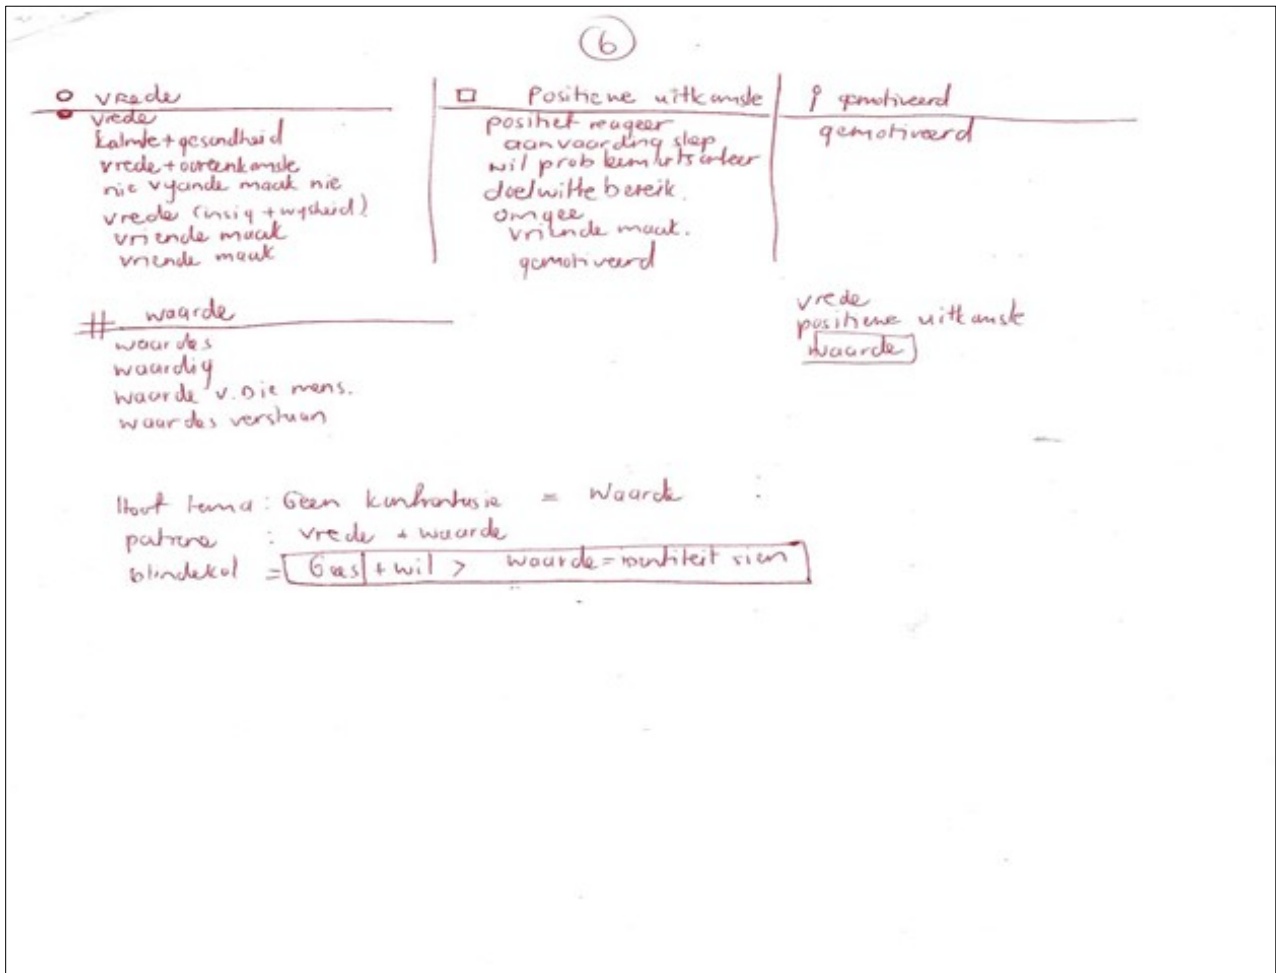 6
vrede
vrede
kalmte + gesondheid
vrede + ooreenkomste
nie vyande maak nie
vrede (insig + wysheid)
vriende maak
vriende maak
Positiewe uitkomste
positief reageer
aanvaarding
wil prob
doelwitte bereik.
omgee
vriende maak.
gemotiveerd
gemotiveerd
gemotiveerd
# waarde
waardes
waardig
waarde v. Die mens.
waardes verstaan
vrede
positiewe uitkomste
waarde
Hoof tema : Geen konfrontasie = Waarde
patrone : vrede + waarde
blindekol = Gees + wil > waarde = identiteit sien